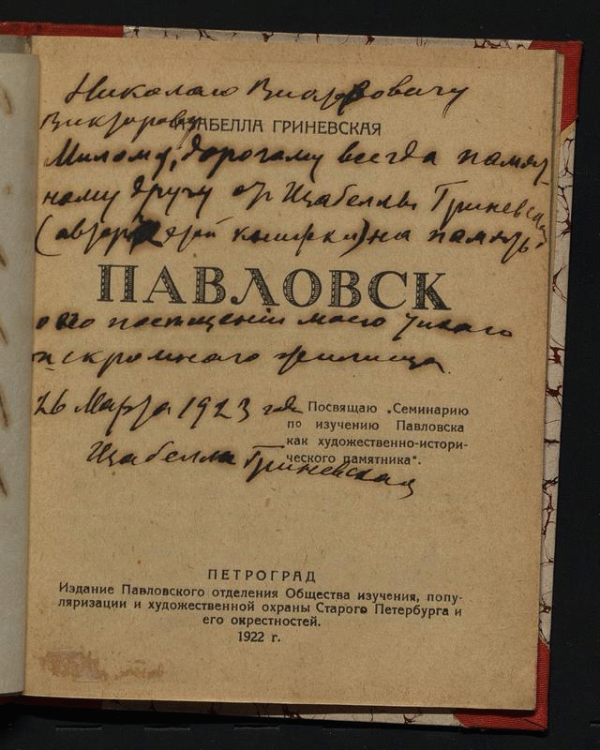 Николаю Викторовичу
Викторову
ИЗАБЕЛЛА ГРИНЕВСКАЯ
Милому, дорогому всегда памят-
ному другу от Изабеллы Гриневская
(автора этой книжки) на память
ПАВЛОВСК
о его посещении моего тихаго
и скромнаго жилища
26 Марта 1923 года
Посвящаю „Семинарию
по изучению Павловска
как художественно-истори-
ческого памятника“.
Изабелла Гриневская
ПЕТРОГРАД
Издание Павловского отделения Общества изучения, попу-
ляризации и художественной охраны Старого Петербурга и
его окрестностей.
1922 г.